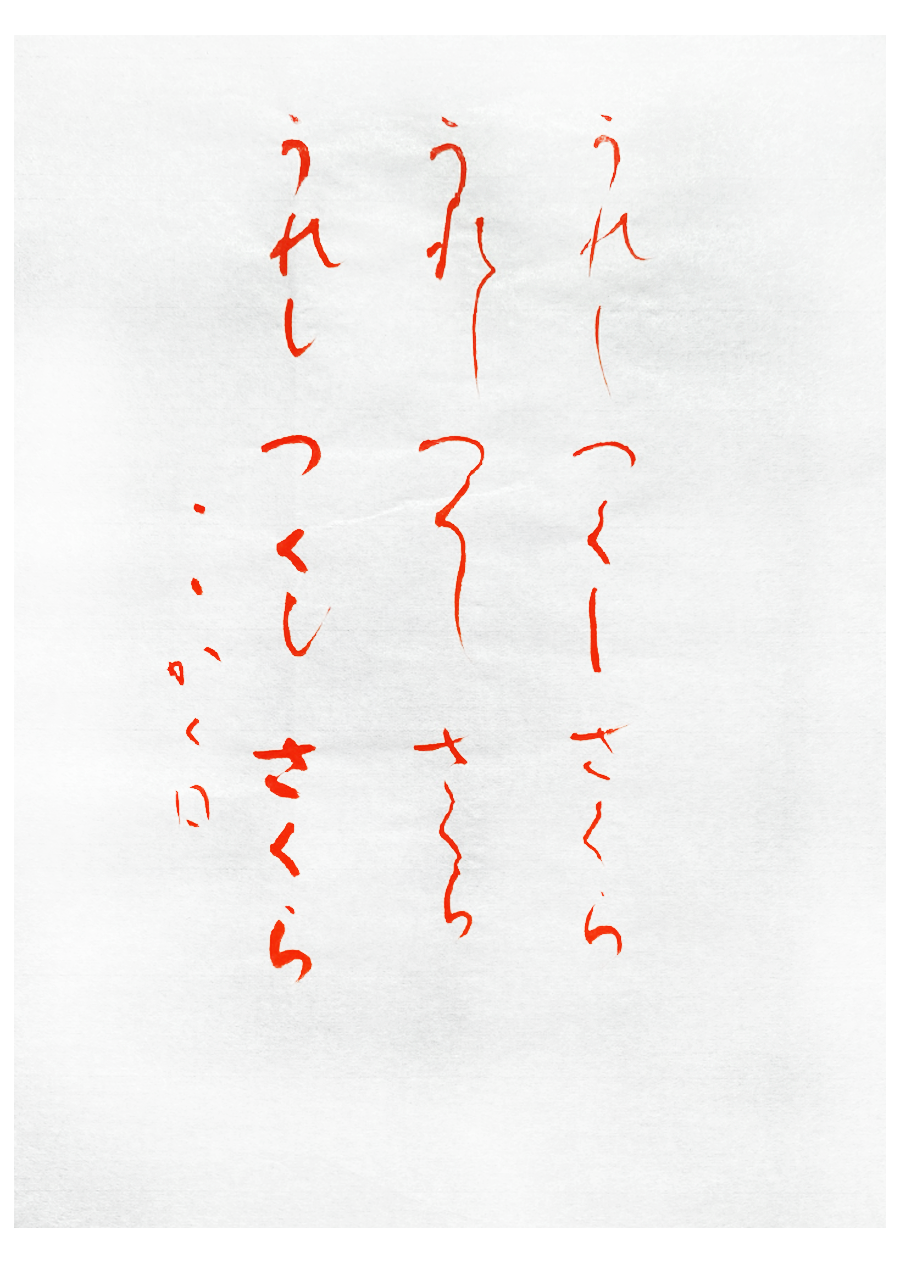 うれし つくし さくら
うれし つくし さくら
うれし つくし さくら
かく